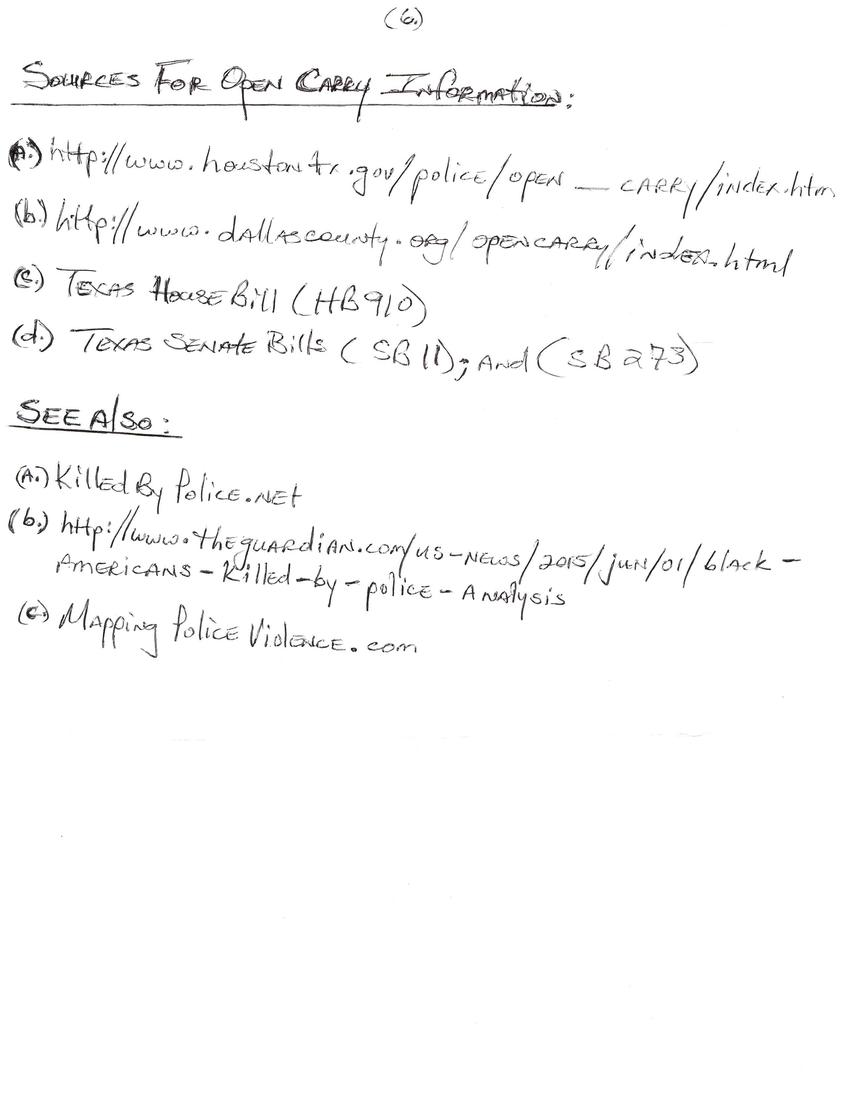 (6.)
Sources For Open Carry Information:
(A.) http://www.houstontx.gov/police/open_carry/index.htm
(b.) http://www.dallascounty.org/opencarry/index.html
(c.) Texas House Bill (HB910)
(d.) Texas Senate Bills (SB11); And (SB273)
See Also:
(A.) Killed By Police.net
(b.) http://www.theguardian.com/us-news/2015/jun/01/black-
Americans-Killed-by-police-Analysis
(c.) Mapping Police Violence.com